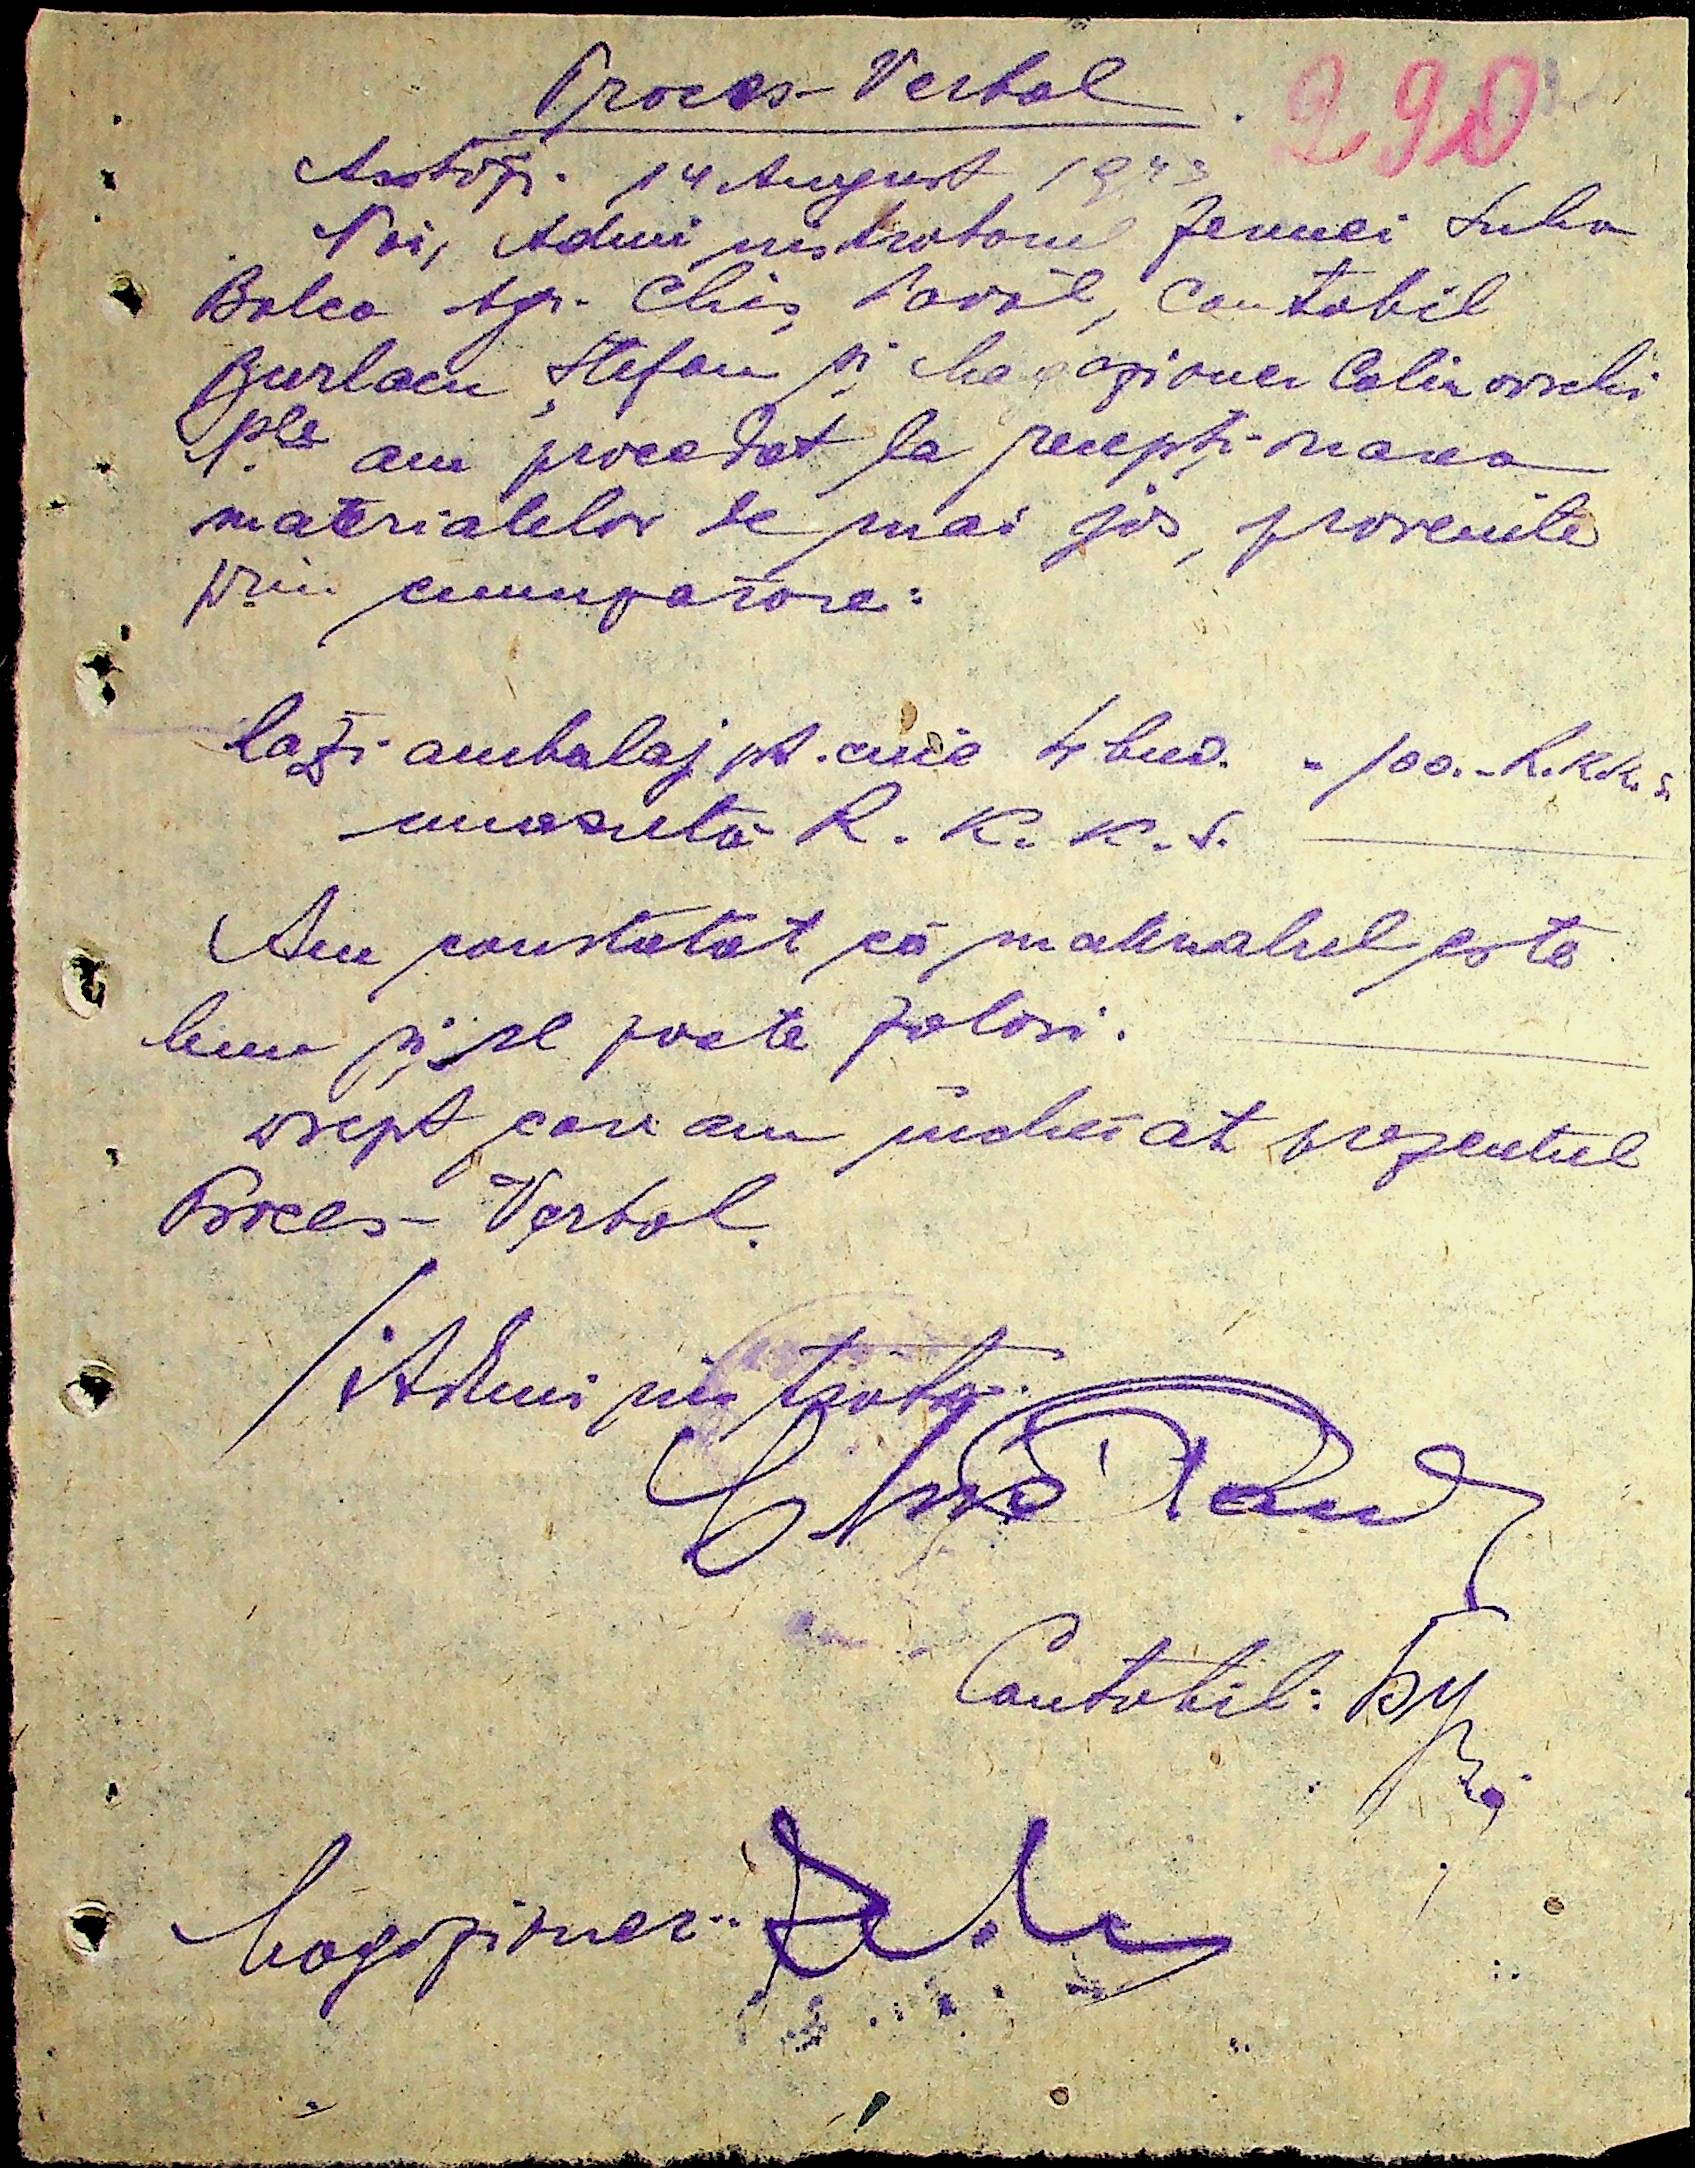 Proces-Verbal
290
Astăzi 14 August 1943
Noi, Administratorul fermei Suha
Balca agr. Chiș Pavăl, Contabil
Burlacu Ștefan și Magazioner Calinovschi
am procedat la recepționarea
materialelor de mai jos, provenite
prin cumpărare:
Lazi ambalaj pt. cuie 4 buc. = 100.- R.K.K.S.
una sută R. K. K. S.
Am constatat că materialul este
bun și se poate folosi.
Drept care am încheiat prezentul
Proces-Verbal.
Administrator
Contabil:
Magazioner: